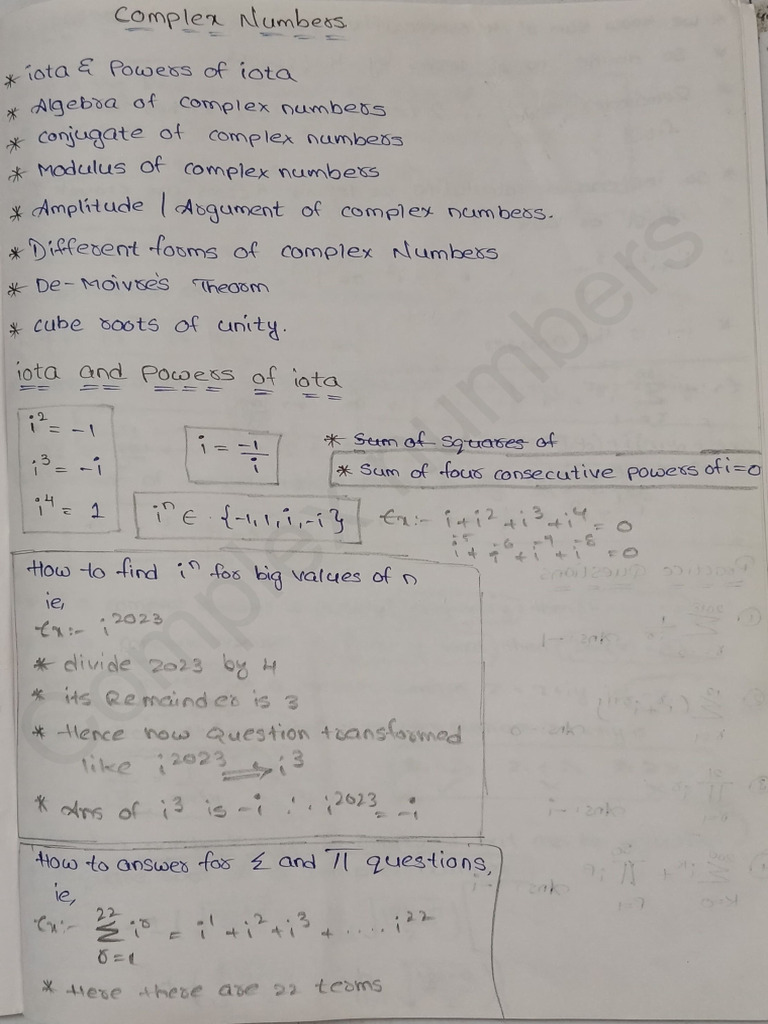 Complex Numbers
* iota & Powers of iota
* Algebra of complex numbers
* conjugate of complex numbers
* Modulus of complex numbers
* Amplitude / Argument of complex numbers.
* Different forms of complex Numbers
* De-Moivre's Theorm
* cube roots of unity.
iota and Powers of iota
i² = -1
i³ = -i
i⁴ = 1
i = -1/i
iⁿ ∈ {-1, 1, i, -i}
* Sum of squares of
* Sum of four consecutive powers of i = 0
Ex:- i + i² + i³ + i⁴ = 0
How to find iⁿ for big values of n
ie,
Ex:- i²⁰²³
* divide 2023 by 4
* its Remainder is 3
* Hence now Question transformed
like i²⁰²³ ⟹ i³
* Ans of i³ is -i ∴ i²⁰²³ = -i
How to answer for Σ and Π questions,
ie,
Ex:- 22 Σ r=1 iʳ = i¹ + i² + i³ + ..... i²²
* Here there are 22 terms
Complex Numbers